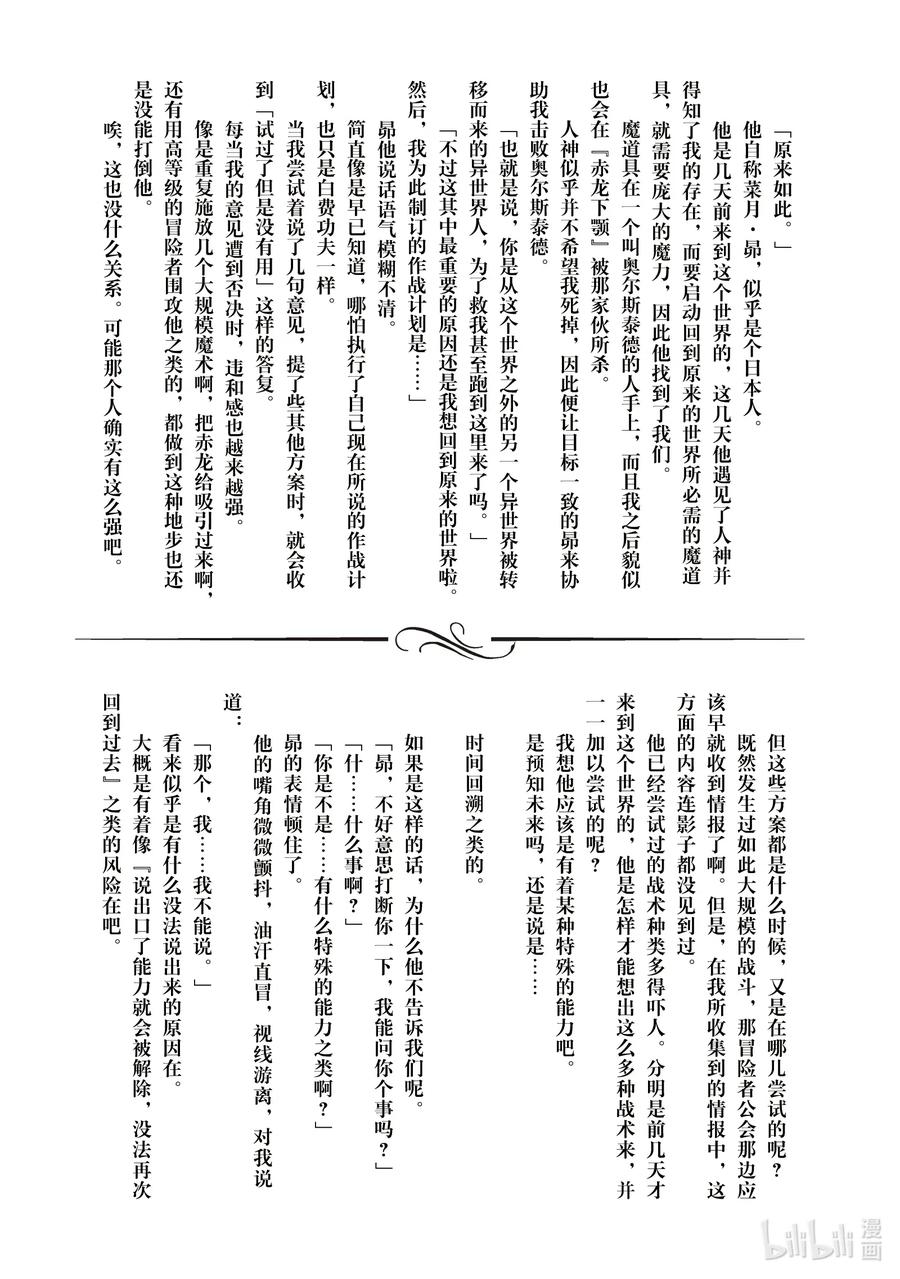 「原来如此。」
他自称菜月·昴，似乎是个日本人。
他是几天前来到这个世界的，这几天他遇见了人神并
得知了我的存在，而要启动回到原来的世界所必需的魔道
具，就需要庞大的魔力，因此他找到了我们。
魔道具在一个叫奥尔斯泰德的人手上，而且我之后貌似
也会在『赤龙下颚』被那家伙所杀。
人神似乎并不希望我死掉，因此便让目标一致的昴来协
助我击败奥尔斯泰德。
「也就是说，你是从这个世界之外的另一个异世界被转
移而来的异世界人，为了救我甚至跑到这里来了吗。」
「不过这其中最重要的原因还是我想回到原来的世界啦。
然后，我为此制订的作战计划是……」
昴他说话语气模糊不清。
简直像是早已知道，哪怕执行了自己现在所说的作战计
划，也只是白费功夫一样。
当我尝试着说了几句意见，提了些其他方案时，就会收
到「试过了但是没有用」这样的答复。
每当我的意见遭到否决时，违和感也越来越强。
像是重复施放几个大规模魔术啊，把赤龙给吸引过来啊，
还有用高等级的冒险者围攻他之类的，都做到这种地步也还
是没能打倒他。
唉，这也没什么关系。可能那个人确实有这么强吧。
但这些方案都是什么时候，又是在哪儿尝试的呢？
既然发生过如此大规模的战斗，那冒险者公会那边应
该早就收到情报了啊。但是，在我所收集到的情报中，这
方面的内容连影子都没见到过。
他已经尝试过的战术种类多得吓人。分明是前几天才
来到这个世界的，他是怎样才能想出这么多种战术来，并
一一加以尝试的呢？
我想他应该是有着某种特殊的能力吧。
是预知未来吗，还是说是……
时间回溯之类的。
如果是这样的话，为什么他不告诉我们呢。
「昴，不好意思打断你一下，我能问你个事吗？」
「什……什么事啊？」
「你是不是……有什么特殊的能力之类啊？」
昴的表情顿住了。
他的嘴角微微颤抖，油汗直冒，视线游离，对我说
道：
「那个，我……我不能说。」
看来似乎是有什么没法说出来的原因在。
大概是有着像『说出口了能力就会被解除，没法再次
回到过去』之类的风险在吧。
bilibili 漫画